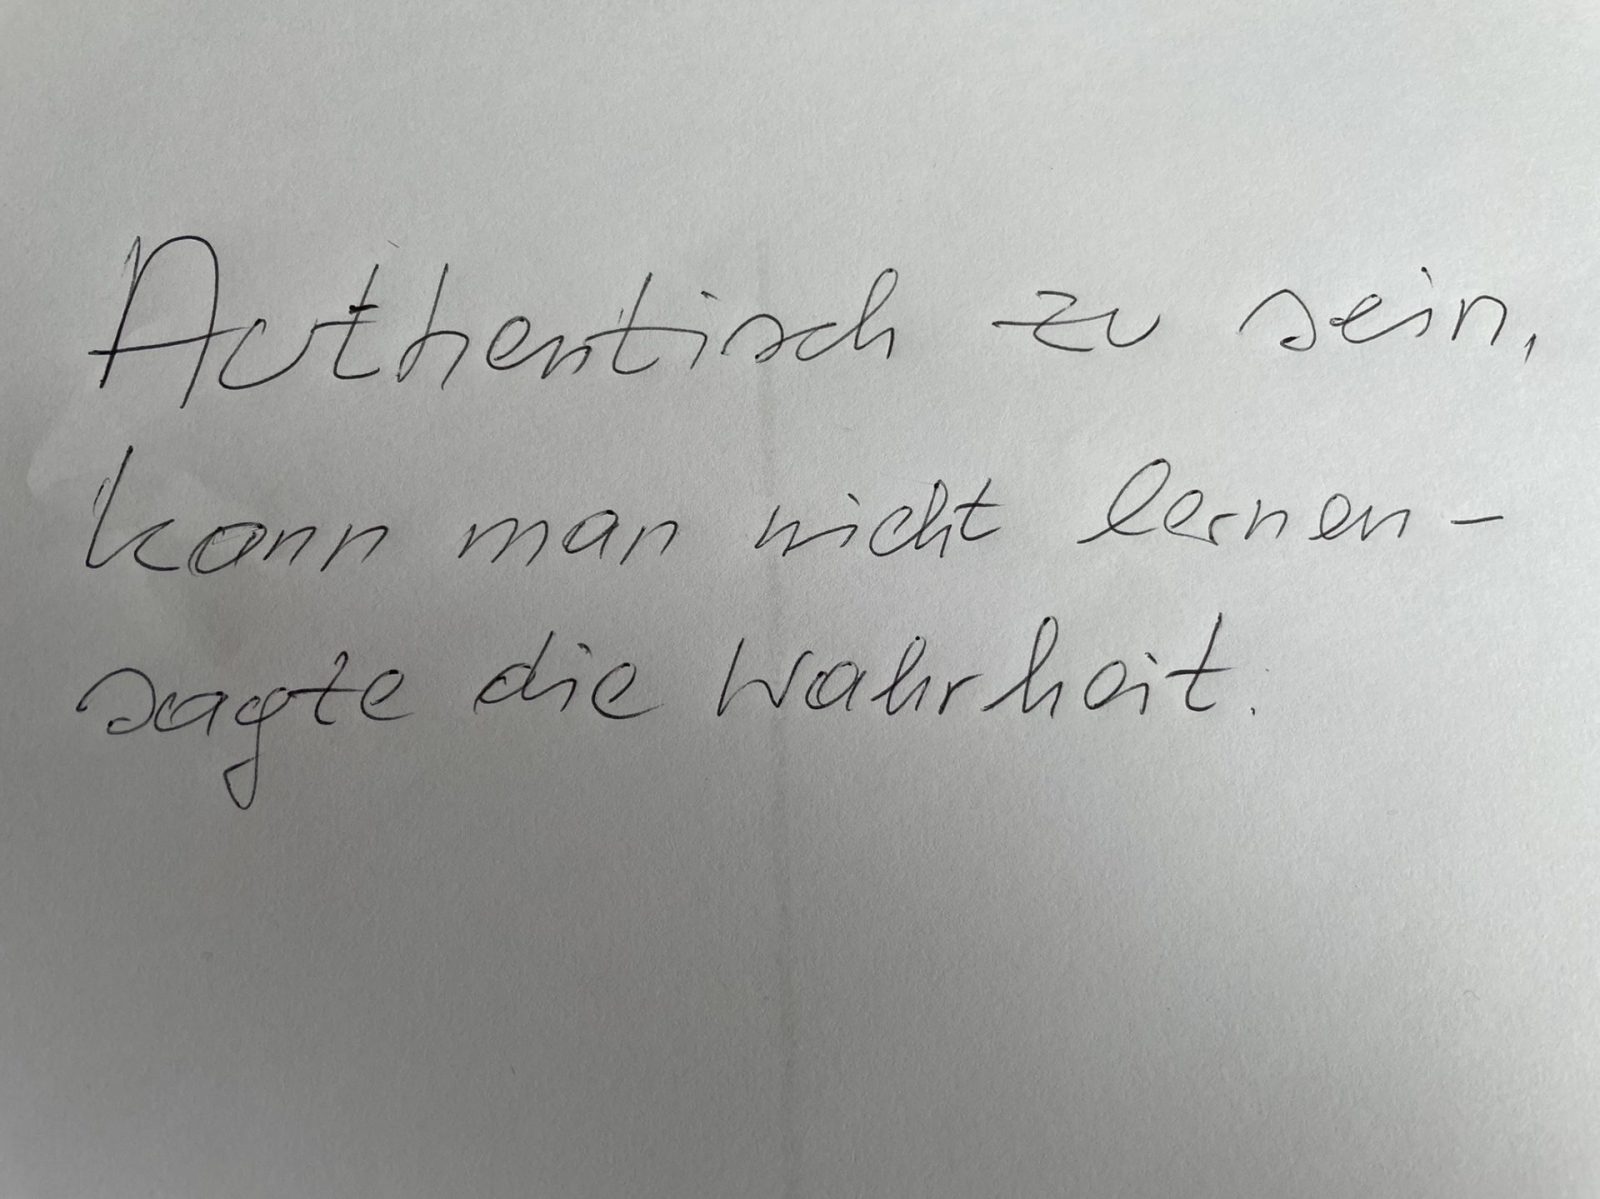 Authentisch zu sein,
kann man nicht lernen -
sagte die Wahrheit.